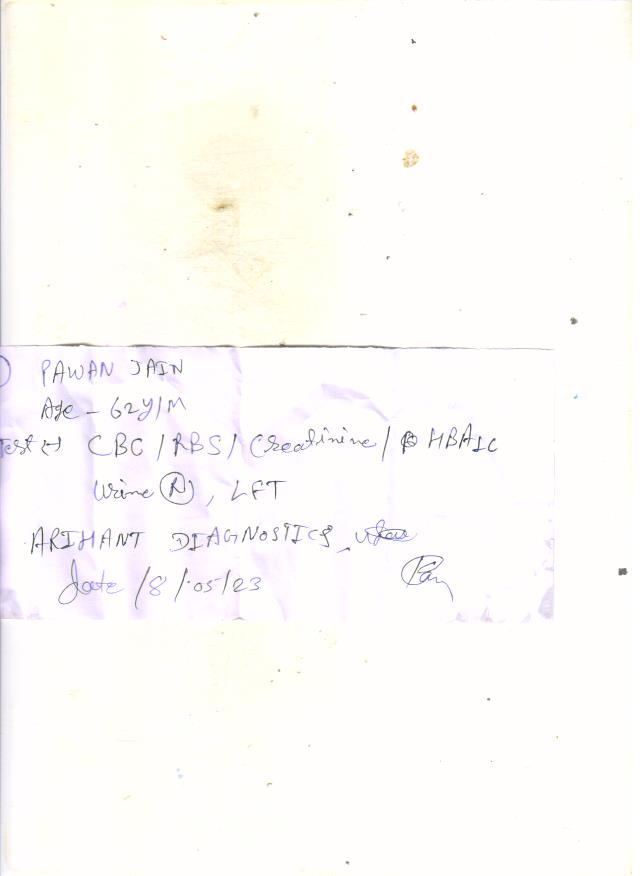 PAWAN JAIN
Age - 62Y/M
Test :-) CBC / RBS / Creatinine / HBA1C
Urine (R), LFT
ARIHANT DIAGNOSTICS
date /8/05/23